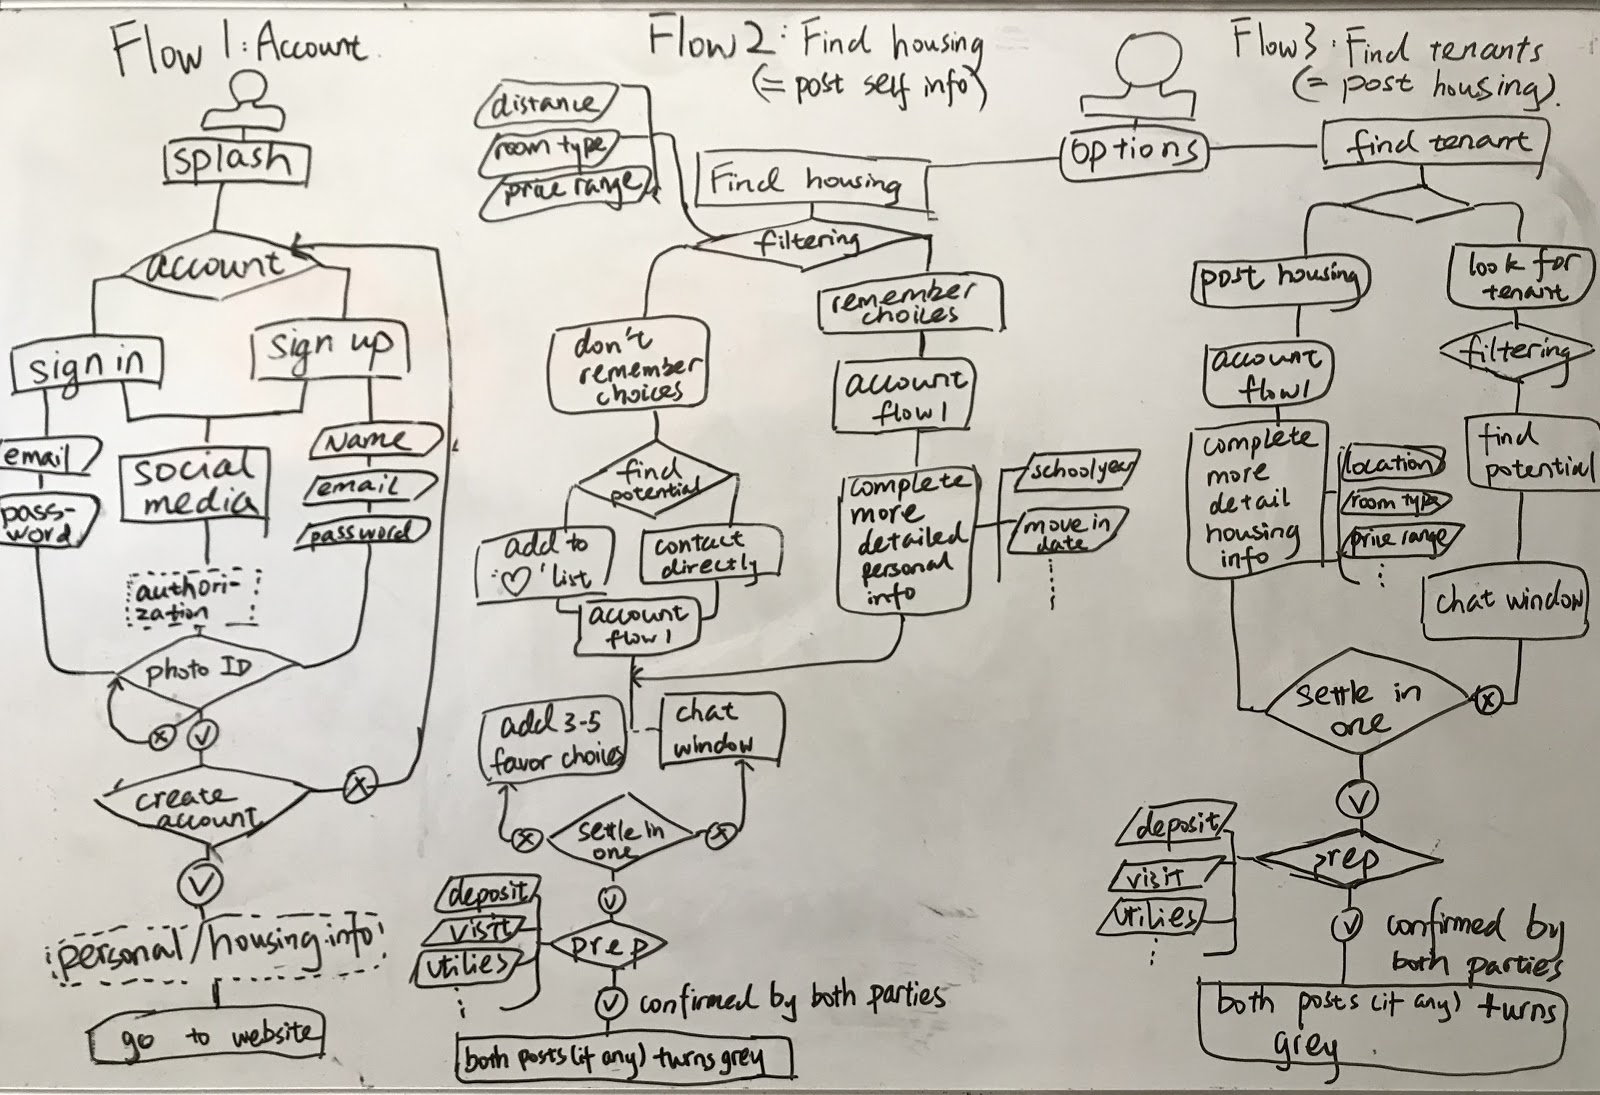 Flow 1: Account
splash
account
sign in
sign up
email
pass-
word
social
media
Name
email
password
authori-
zation
photo ID
x
v
create
account
x
v
personal/housing info
go to website
Flow 2: Find housing
(= post self info)
distance
room type
price range
Find housing
options
filtering
don't
remember
choices
remember
choices
account
flow 1
find
potential
add to
'♡' list
contact
directly
account
flow 1
complete
more
detailed
personal
info
school year
move in
date
add 3-5
favor choices
chat
window
x
settle in
one
x
v
deposit
visit
utilies
prep
v
confirmed by both parties
both posts (if any) turns grey
Flow 3: Find tenants
(= post housing).
find tenant
post housing
look for
tenant
account
flow 1
filtering
complete
more
detail
housing
info
location
room type
price range
find
potential
chat window
settle in
one
x
v
deposit
visit
utilies
prep
v
confirmed by
both parties
both posts (if any) turns
grey